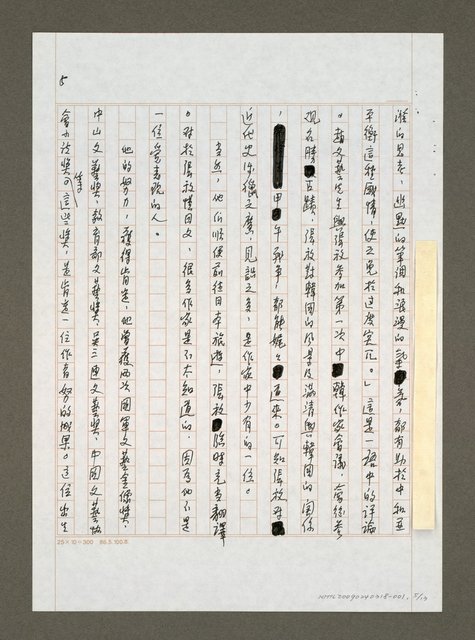 5
雅的思考，幽默的筆調和浪漫的氣氛，都有助於中和並
平衡這種感情，使之免於過度宣洩。」這是一語中的評論
。趙文藝先生與張放參加第一次中韓作家會議，會後參
觀名勝古蹟，張放對韓國的風景及滿清與韓國的關係
，甲午戰爭，都能娓娓道來。可知張放對
近代史作探之廣，見識之多，是作家中少有的一位。
當然，他們順便前往日本旅遊，張放臨時充當翻譯
。對於張放懂日文，很多作家是不太知道的，因為他不是
一位愛表現的人。
他的努力，獲得肯定，他曾獲兩次國軍文藝金像獎，
中山文藝獎，教育部文藝獎，吳三連文藝獎，中國文藝協
會小說獎等。這些獎，是肯定一位作者努力的成果。這位出生
25×10=300 86.5.100本
NMTL20090240318-001. 5/13